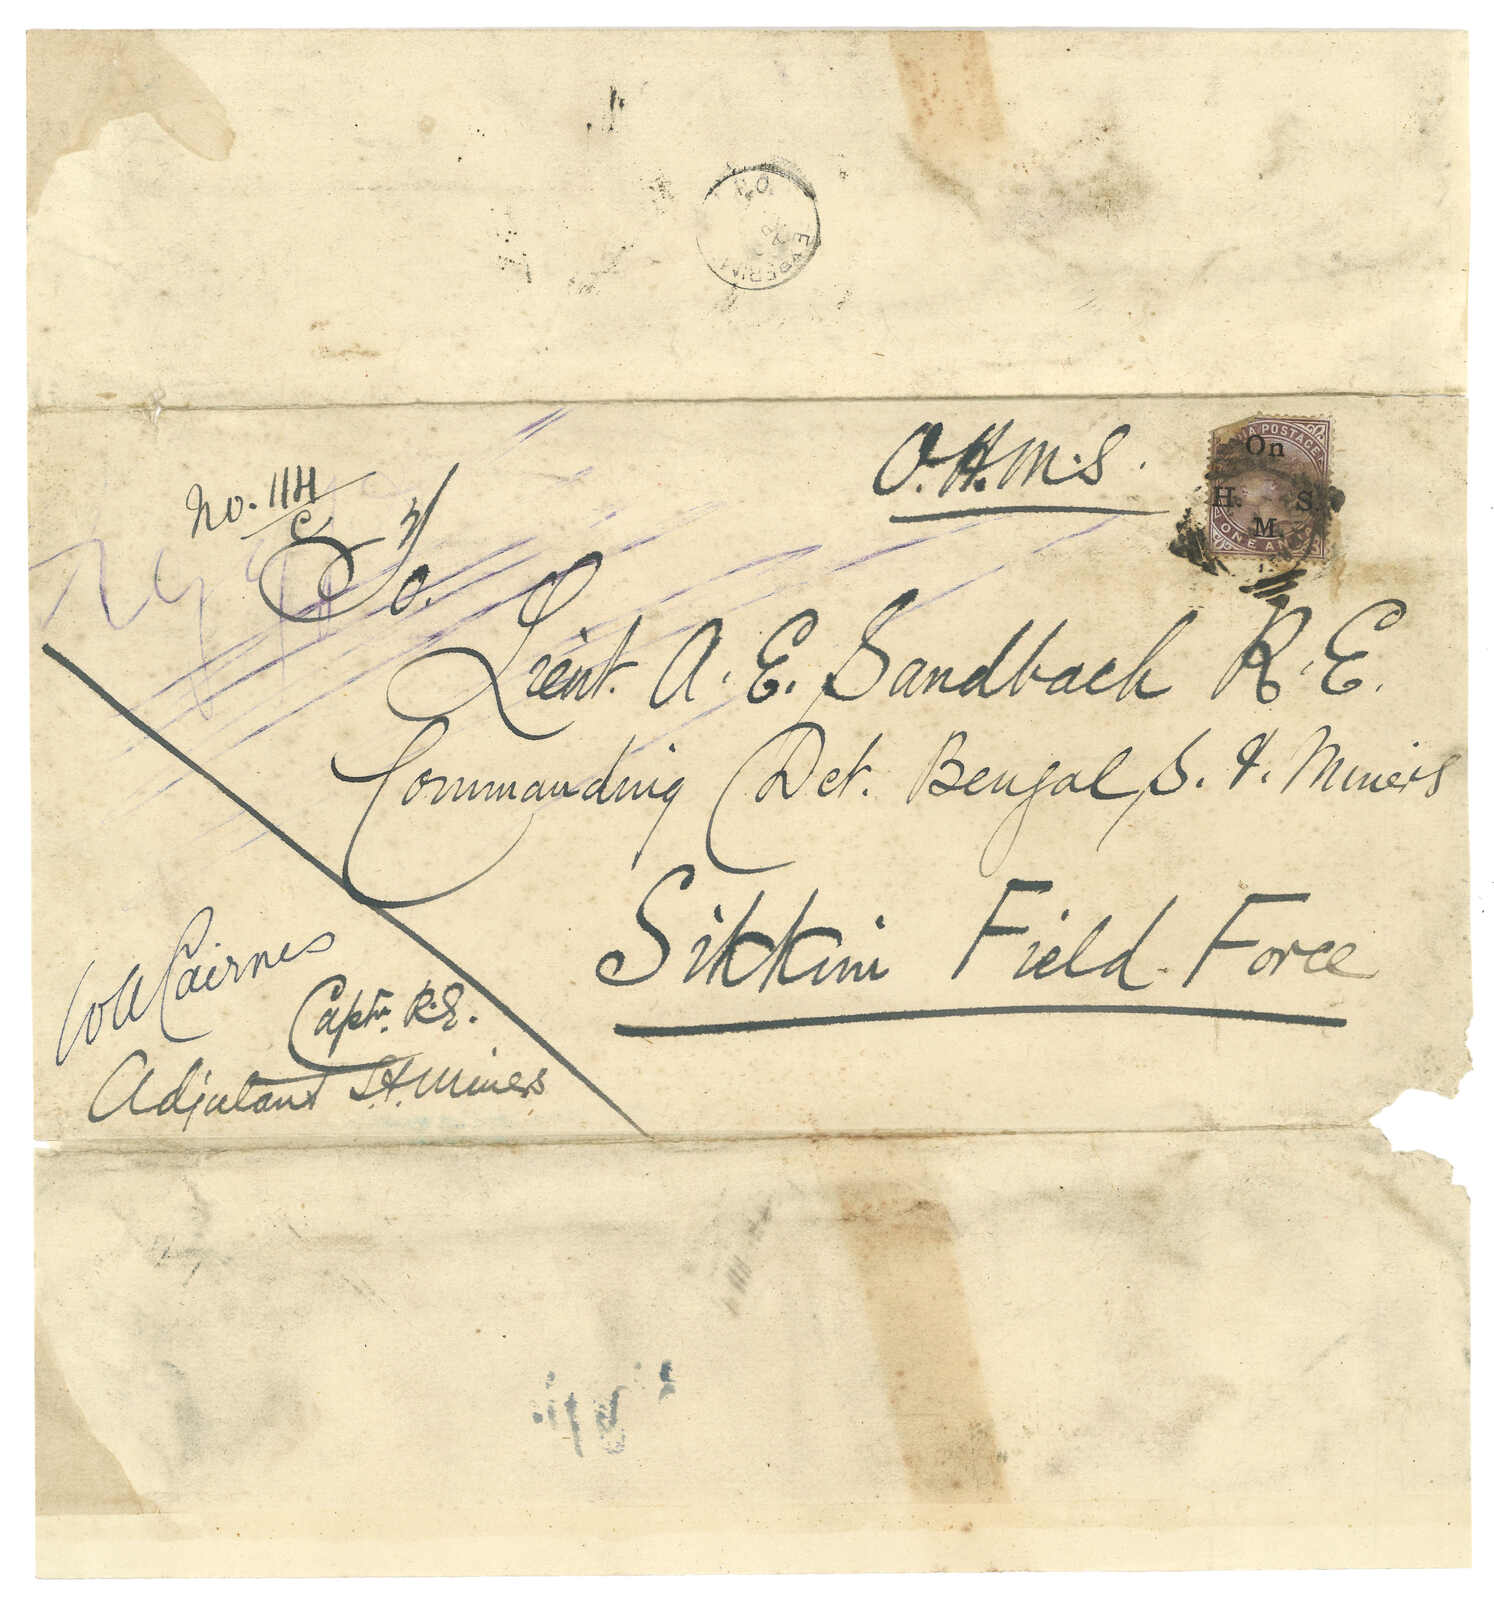 P.O.
EXPERIM
O.H.M.S.
INDIA POSTAGE
On
H. S.
M.
ONE ANNA
No. 1141
C
To.
Lieut. A. E. Sandbach R. E.
Commanding Det. Bengal S. & Miners
Sikkim Field Force
W A Cairnes
Captn. R.E.
Adjutant S. & Miners